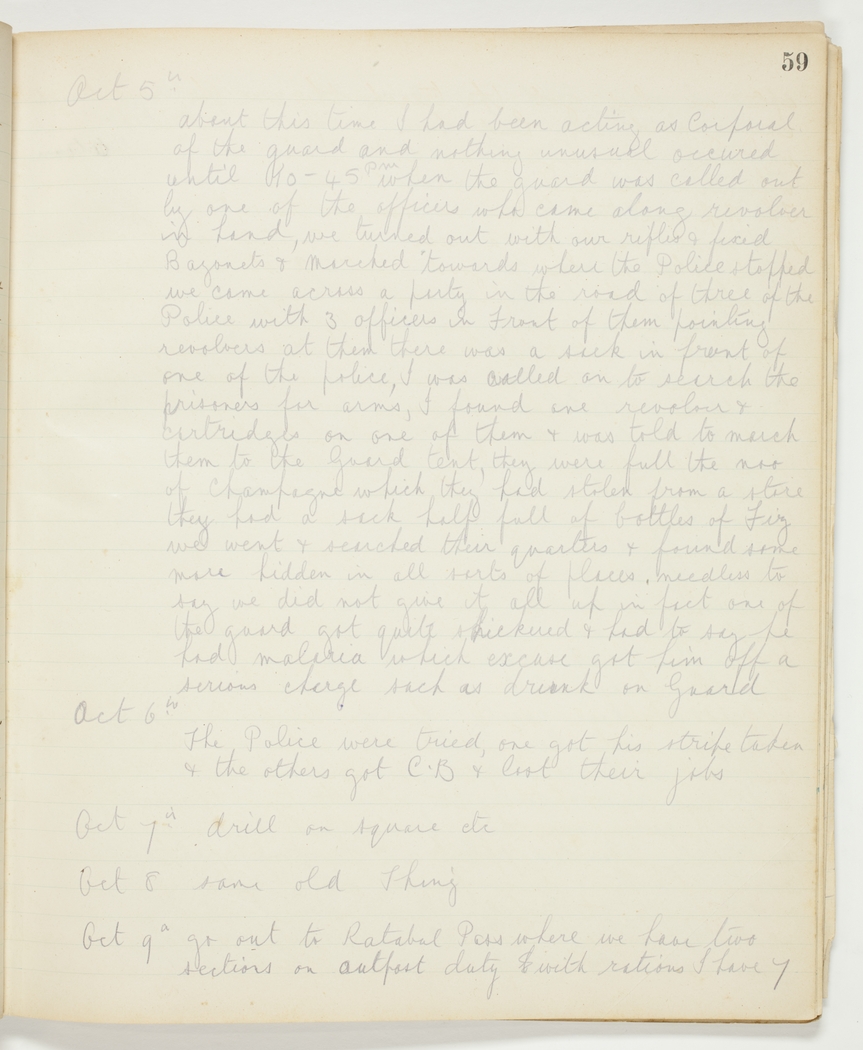 59
Oct 5th
about this time I had been acting as Corporal
of the guard and nothing unusual occured
until 10-45 pm when the guard was called out
by one of the officers who came along revolver
in hand, we turned out with our rifles & fixed
Bayonets & marched towards where the Police stopped
we came across a party in the road of three of the
Police with 3 officers in Front of them pointing
revolvers at them there was a sack in front of
one of the police, I was called on to search the
prisoners for arms, I found one revolver &
cartridges on one of them & was told to march
them to the Guard tent, they were full the noo
of Champagne which they had stolen from a store
they had a sack half full of bottles of Fiz
we went & searched their quarters & found some
more hidden in all sorts of places. needless to
say we did not give it all up in fact one of
the guard got quite shickured & had to say he
had malaria which excuse got him off a
serious charge such as drunk on Guard
Oct 6th
The Police were tried, one got his stripe taken
& the others got C.B & lost their jobs
Oct 7th drill on square etc
Oct 8 same old Thing
Oct 9th go out to Ratabul Pass where we have two
sections on outpost duty & with rations I have 7